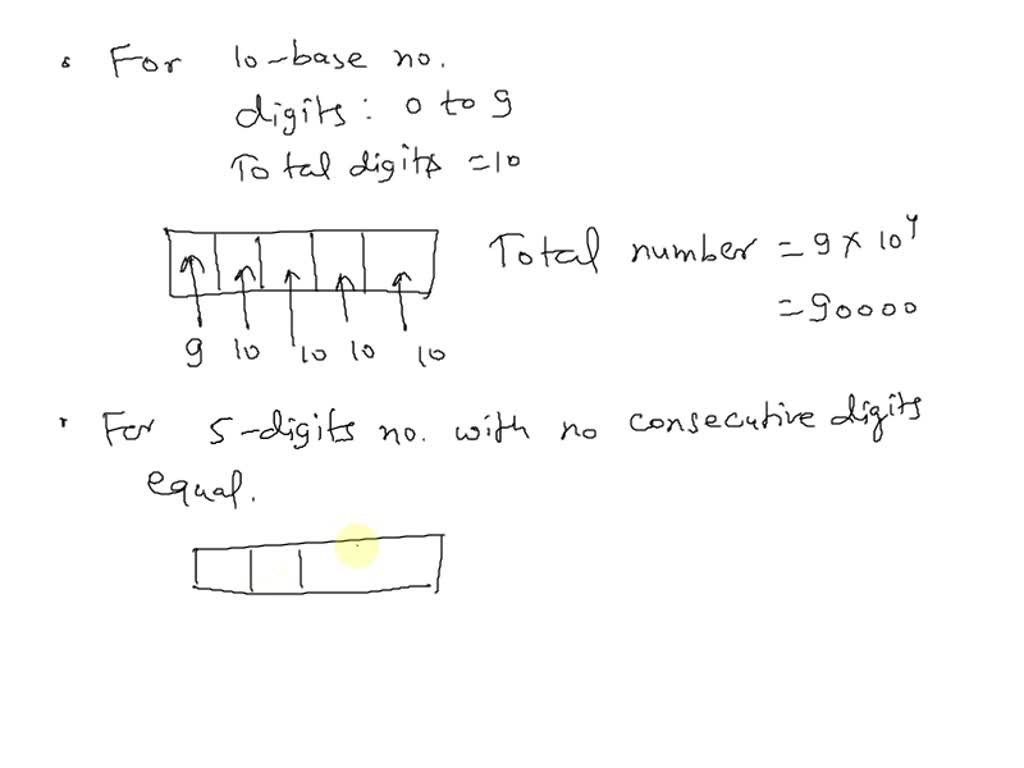 For 10-base no.
digits: 0 to 9
Total digits = 10
Total number = 9 × 10⁴
= 90000
9 10 10 10 10
For 5-digits no. with no consecutive digits
equal.